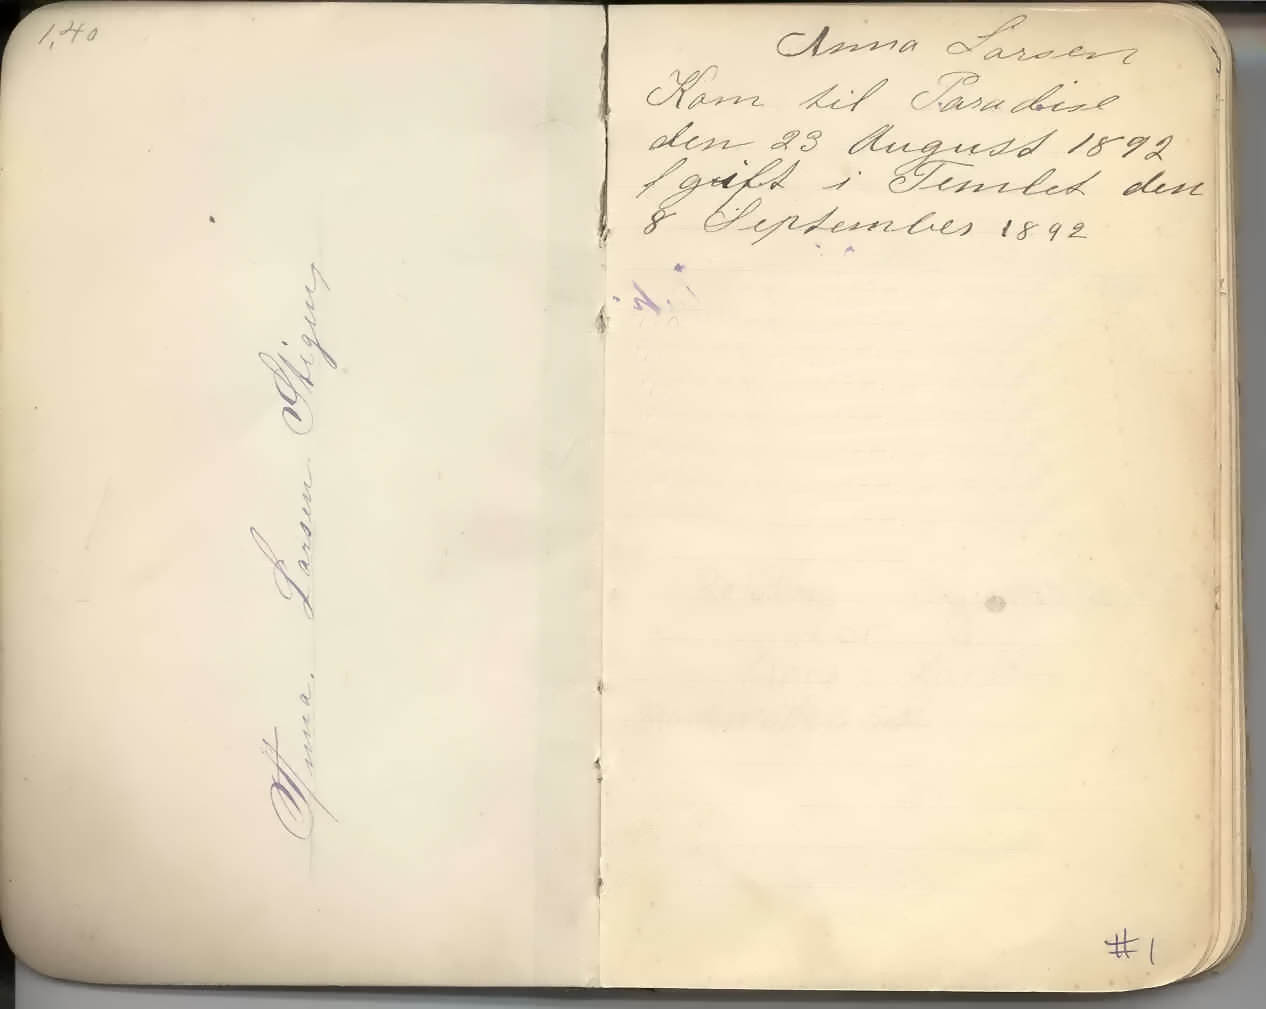 1,40
Anna. Larsen Stigen
Anna Larsen
Kom til Paradise
den 23 August 1892
gift i Temlet den
8 September 1892
#1